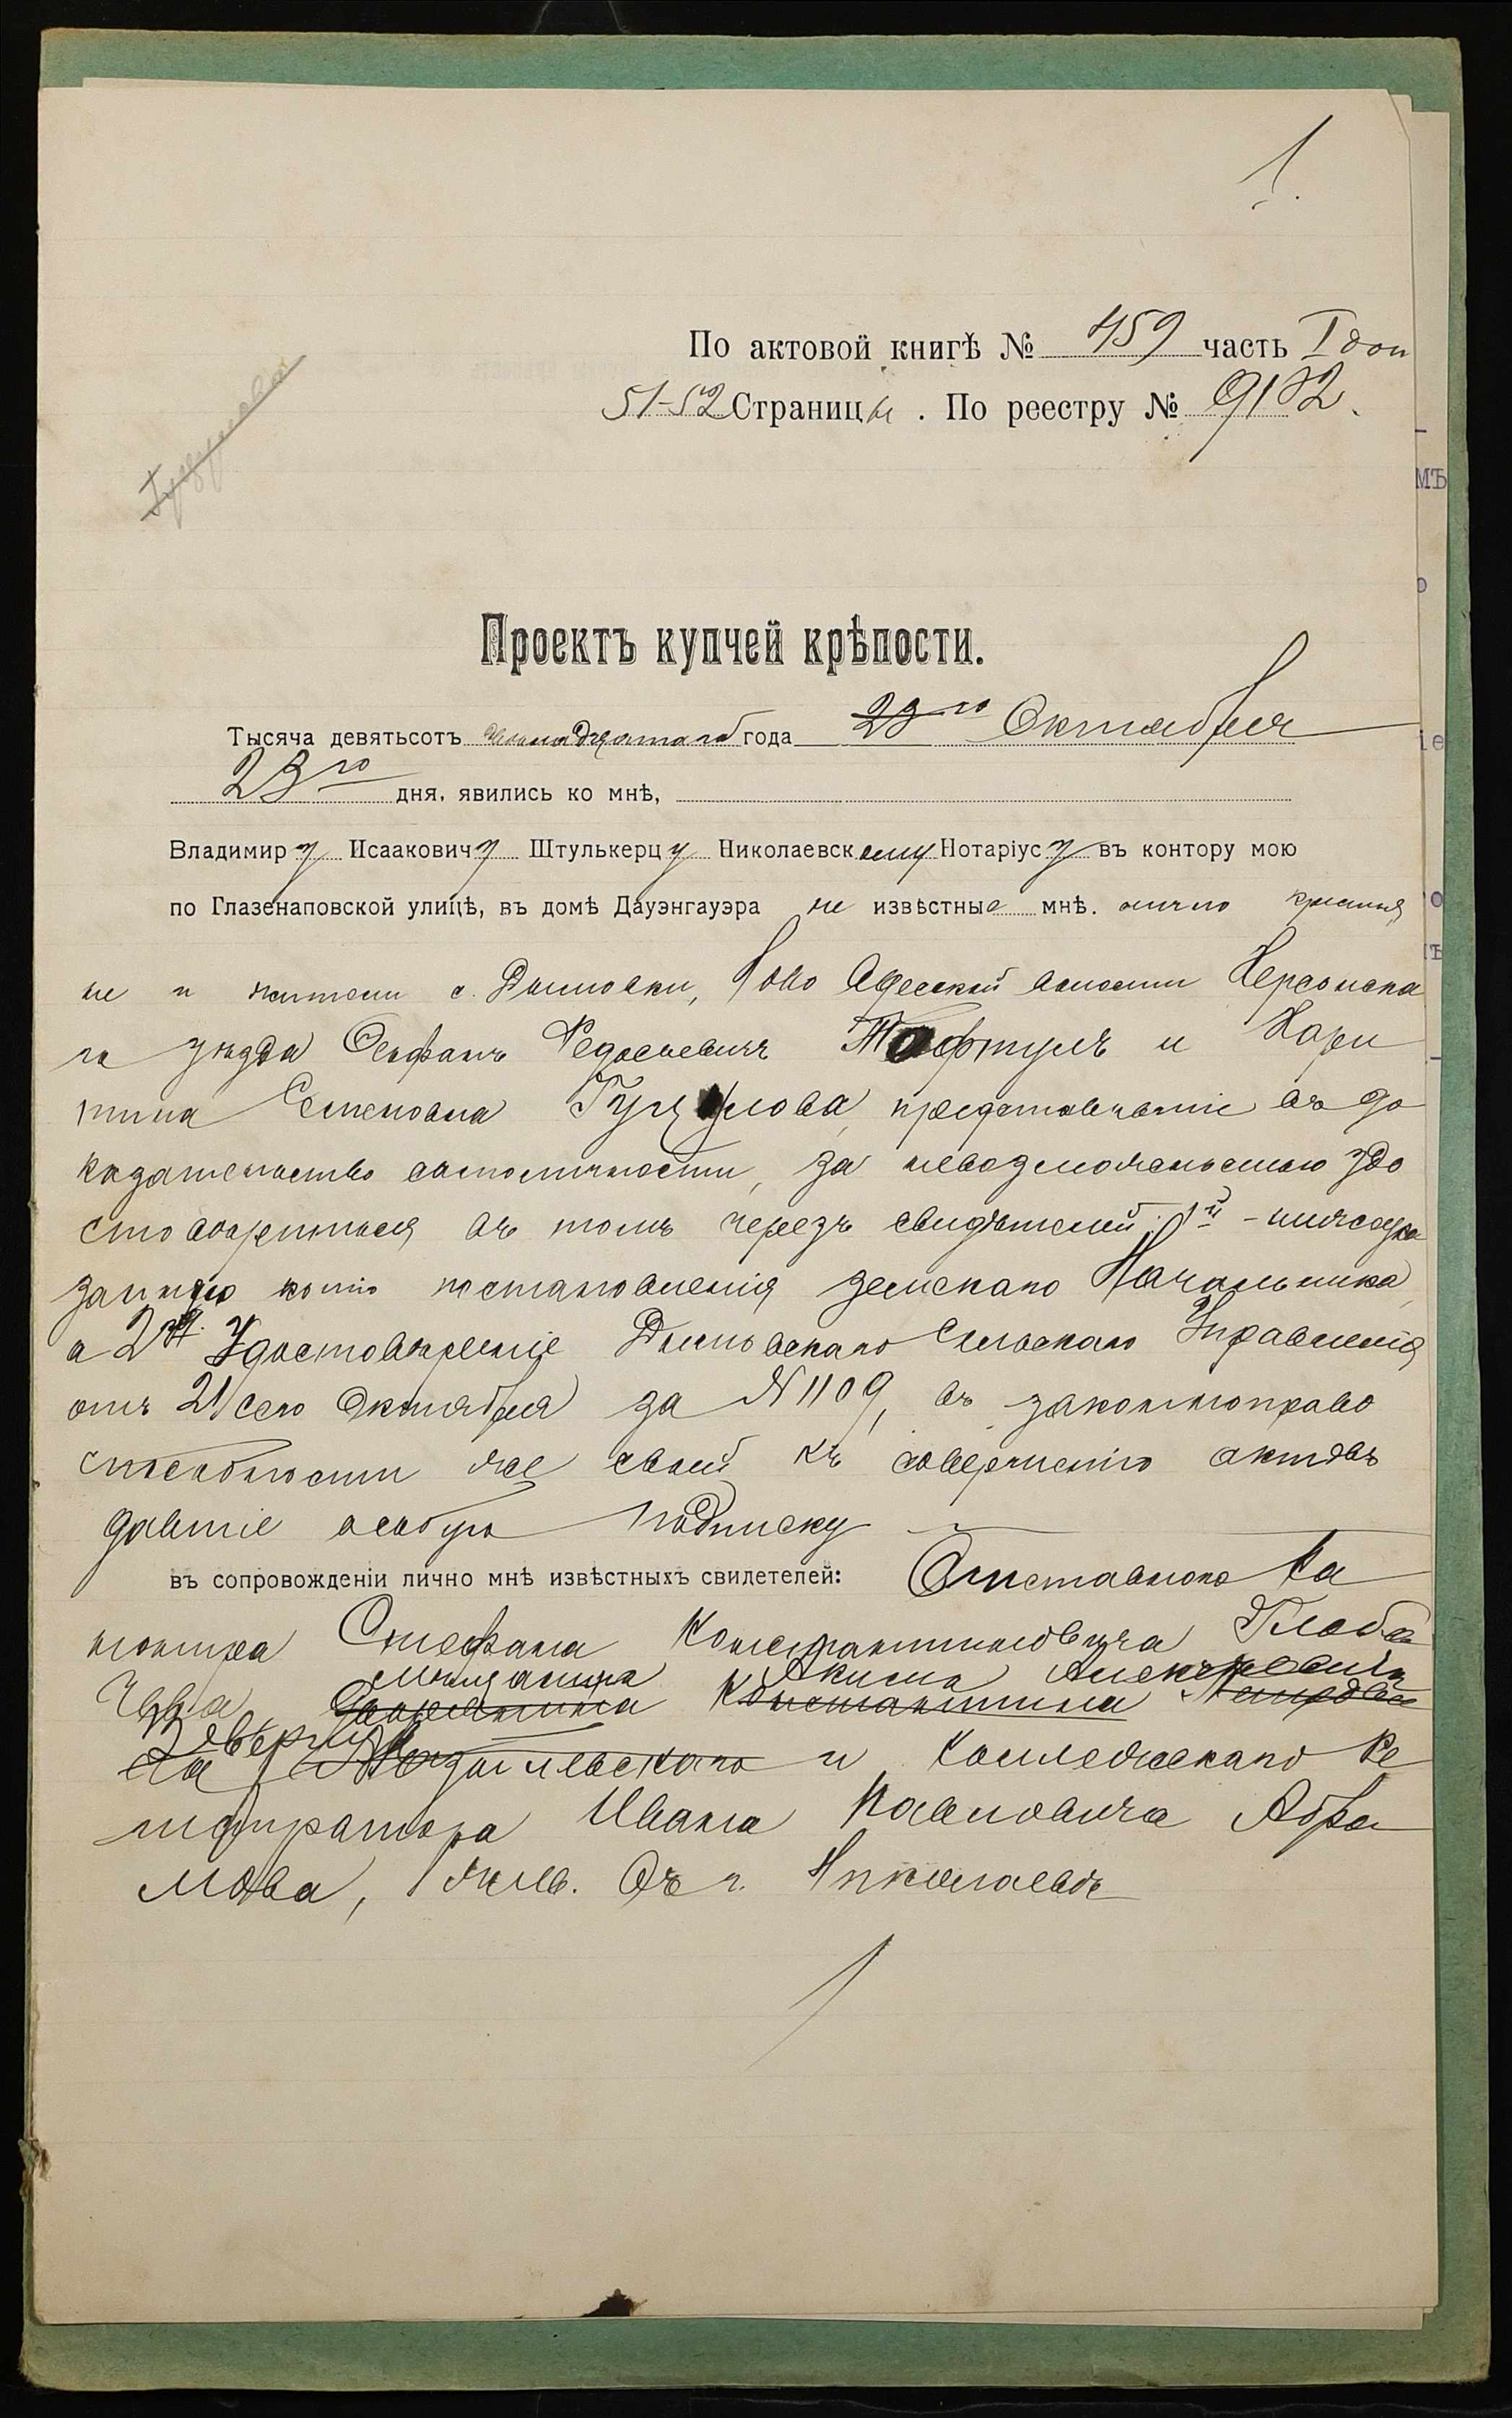 1.
По актовой книгѣ № 459 часть I доп
51-52 Страницы. По реестру № 9182.
Проектъ купчей крѣпости.
Тысяча девятьсотъ года 23го Октября
23го дня, явились ко мнѣ,
Владимиру Исааковичу Штулькерцу Николаевскому Нотаріусу въ контору мою
по Глазенаповской улицѣ, въ домѣ Дауэнгауэра не извѣстные мнѣ. лично крестья
не и жители с. Дымовки, Ново Одесской волости Херсонска
го уѣзда Федосьевичъ Тафтулъ и Хари
тина Семеновна представившіе въ до
казательство самоличности, за невозможностью удо
стовѣриться въ томъ черезъ свидѣтелей: 1й -
копію постановленія Земскаго Начальника,
а 2й Удостовѣреніе Дымовскаго Сельскаго Управленія
отъ 21 сего Октября за № 1109, въ законной право
способности же своей къ совершенію актовъ
давшіе особую подписку
въ сопровожденіи лично мнѣ извѣстныхъ свидетелей: Отставного Ка
нонира Стефана Константиновича Глоба
мѣщанина Акима Алексѣевича
чева, Дворянина Константина Петрови
ча и Коллежскаго Ре
гистратора Ивана Павловича Абра
мова, жив. въ г. Николаевѣ